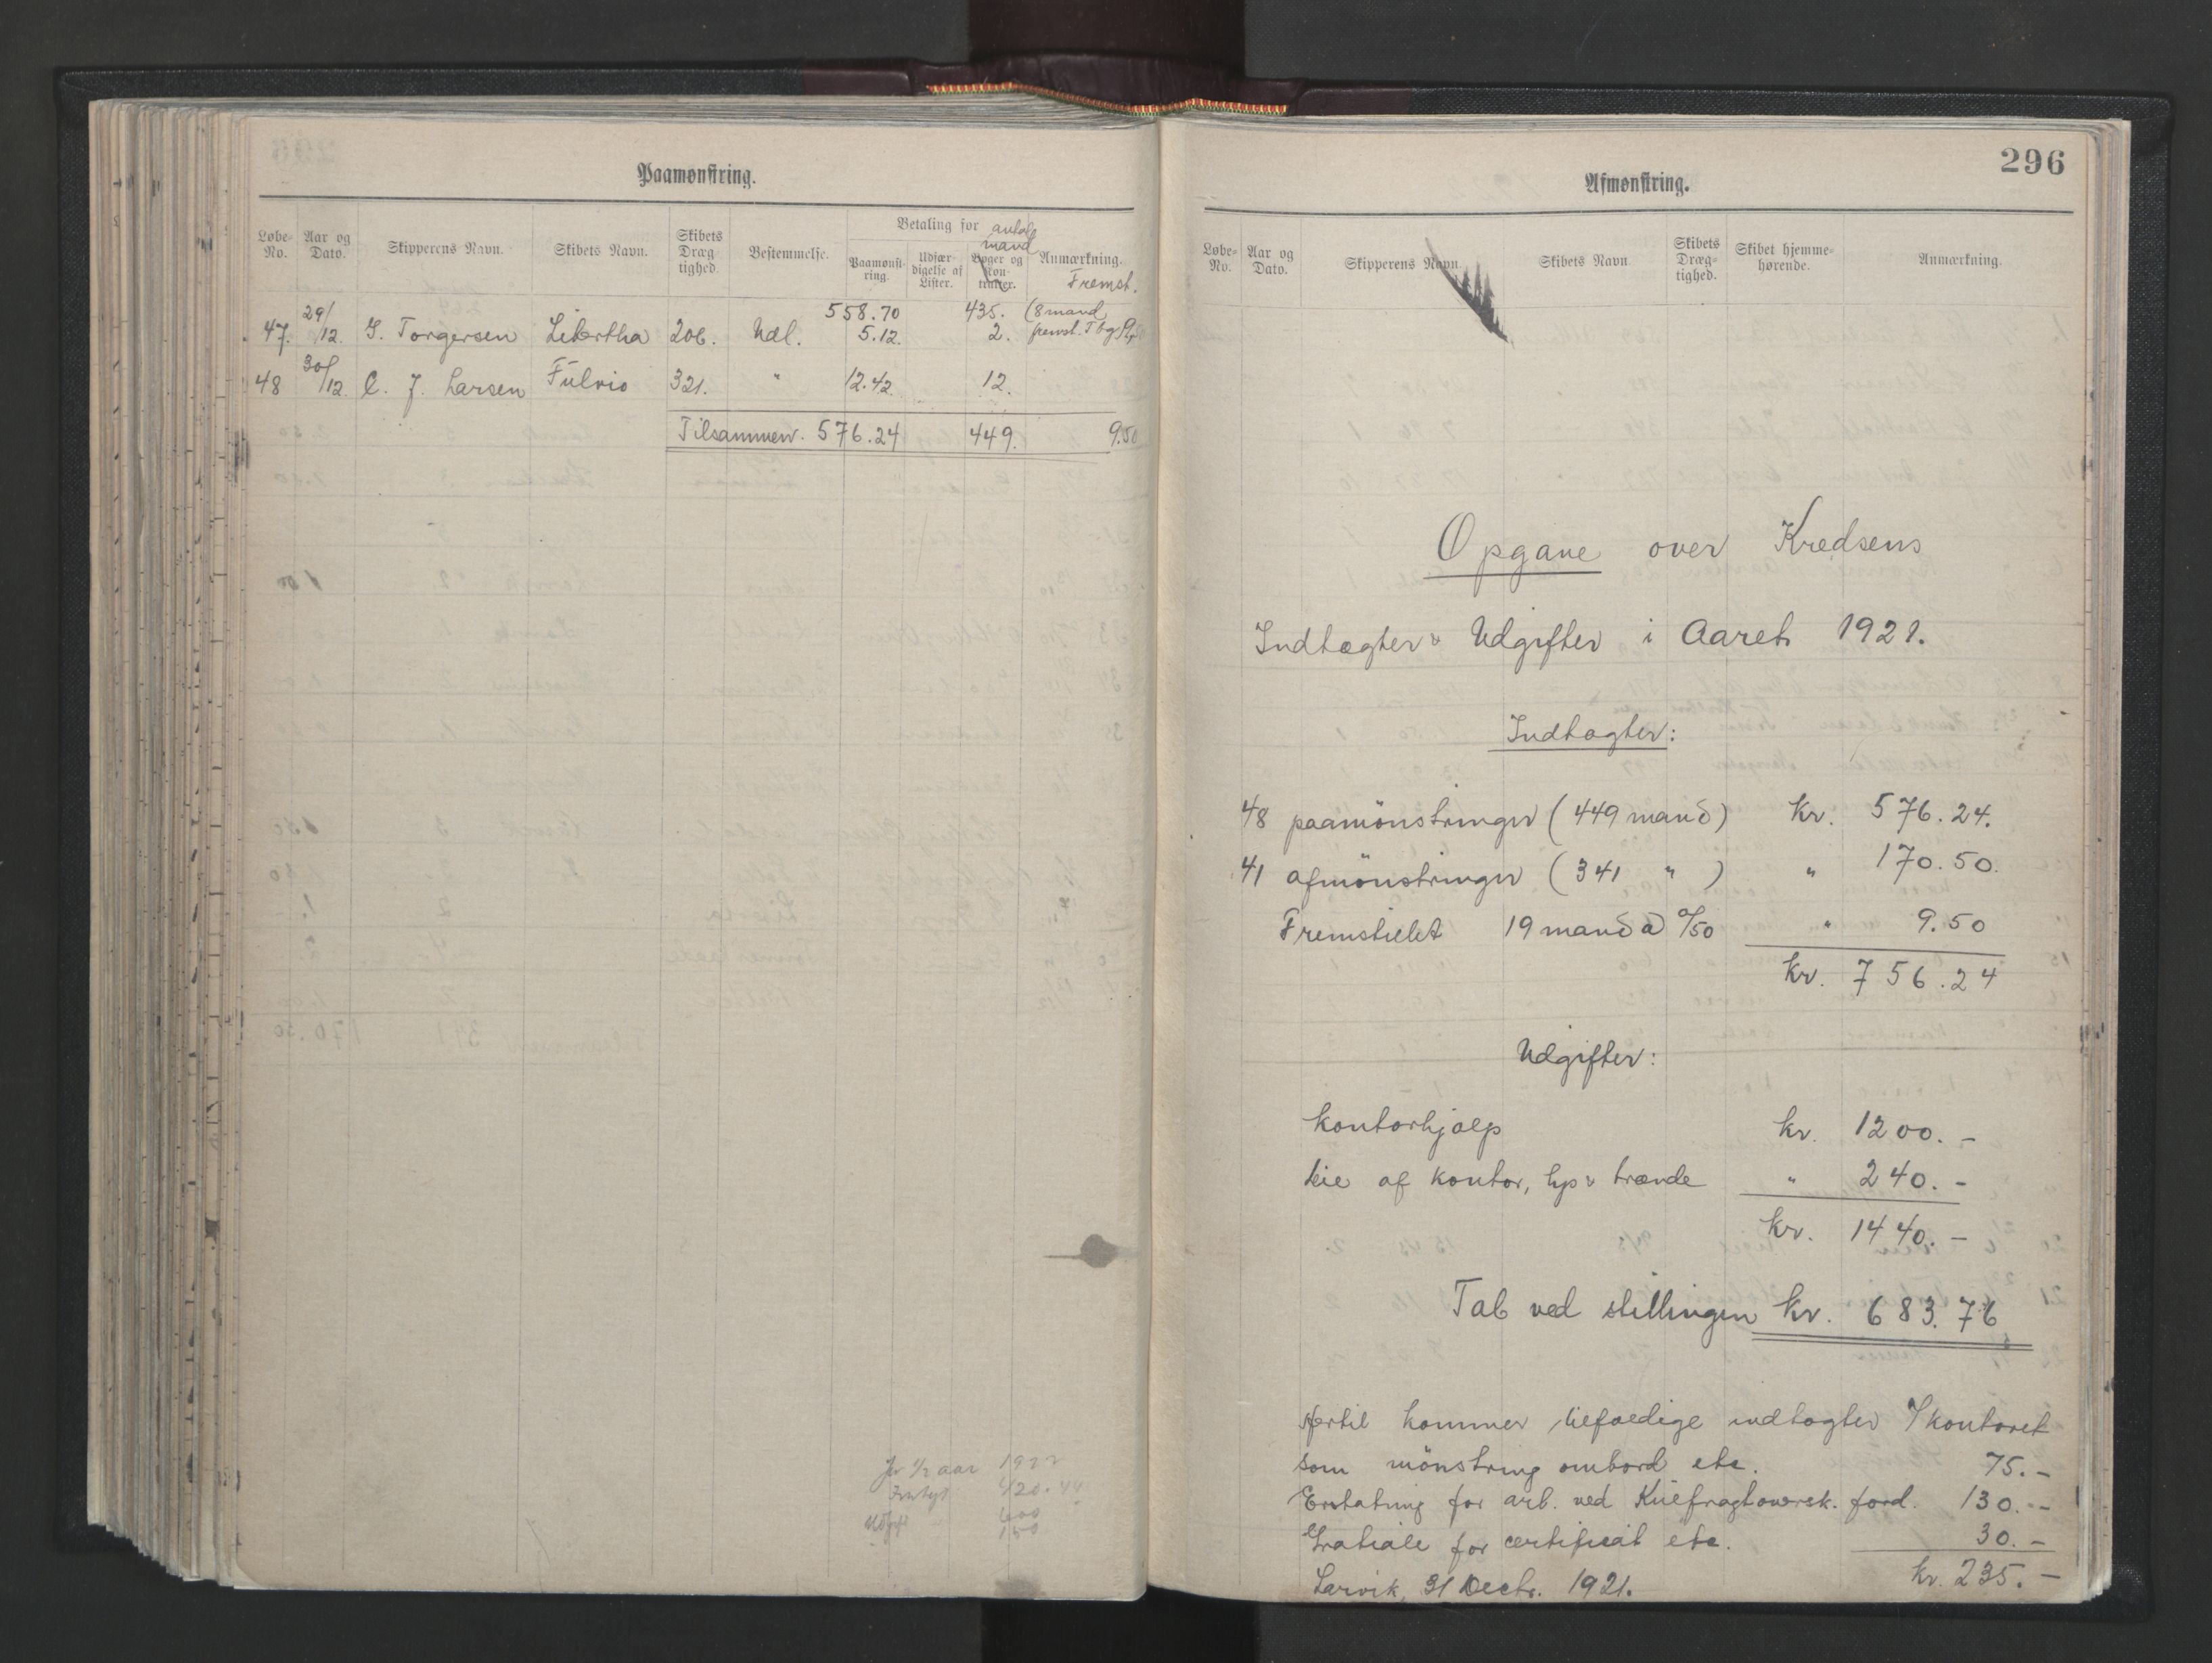 Paamønstring.
Løbe-No. Aar og Dato. Skipperens Navn. Skibets Navn. Skibets Dræg-tighed. Bestemmelse. Betaling for antal mand Anmærkning.
Paamønst-ring. Udfær-digelse af Lister. Bøger og Kon-trakter. Fremst.
558.70 435. (8 mand
47. 29/12. G. Torgersen Libertha 206. Udl. 5.12. 2. fremst.
48 30/12. C. J. Larsen Fulvio 321. " 12.42. 12.
Tilsammen. 576.24 449. 9.50
1/2 aar 1922
420.44
600
150
296
Afmønstring.
Løbe-No. Aar og Dato. Skipperens Navn. Skibets Navn. Skibets Dræg-tighed. Skibet hjemme-hørende. Anmærkning.
Opgave over Kredsens
Indtægter & Udgifter i Aaret 1921.
Indtægter:
48 paamönstringer (449 mand) Kr. 576.24.
41 afmönstringer (341 " ) " 170.50.
Fremstillet 19 mand a 0/50 " 9.50
Kr. 756.24
Udgifter:
Kontorhjælp Kr. 1200.-
Leie af Kontor, lys & brænde " 240.-
Kr. 1440.-
Tab ved stillingen Kr. 683.76
Hertil kommer tilfældige indtægter kontoret
som mönstring ombord etc. 75.-
Erstatning for arb. ved ford. 130.-
Gratiale for certificat etc. 30.-
Larvik, 31 Decbr. 1921. Kr. 235.-